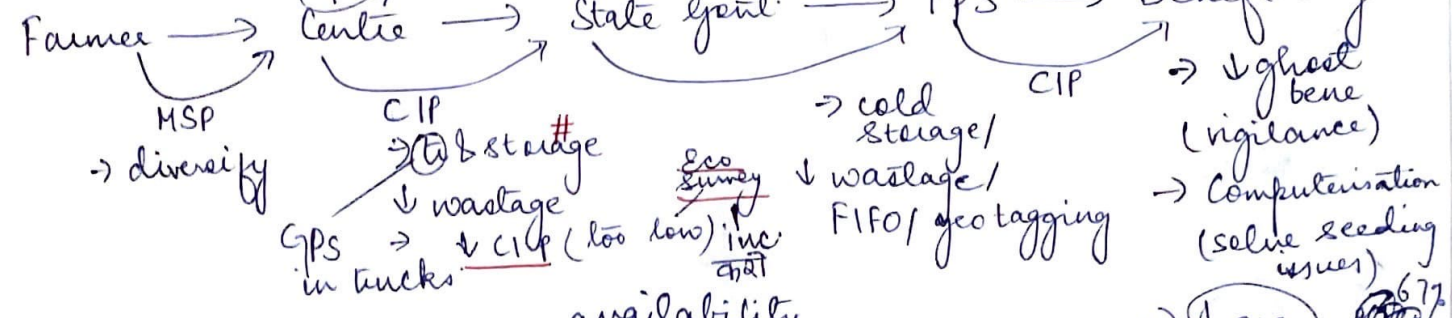 Farmer → Centre → State Govt. →
MSP
CIP
CIP
→ diversify
→ t & storage #
↓ wastage
GPS in trucks
→ ↓ CIP (too low)
Eco Survey
inc. करो
→ cold storage/
↓ wastage/
FIFO/ geotagging
→ ↓ ghost bene
(vigilance)
→ Computerisation
(solve seeding
issues)
availability
67%